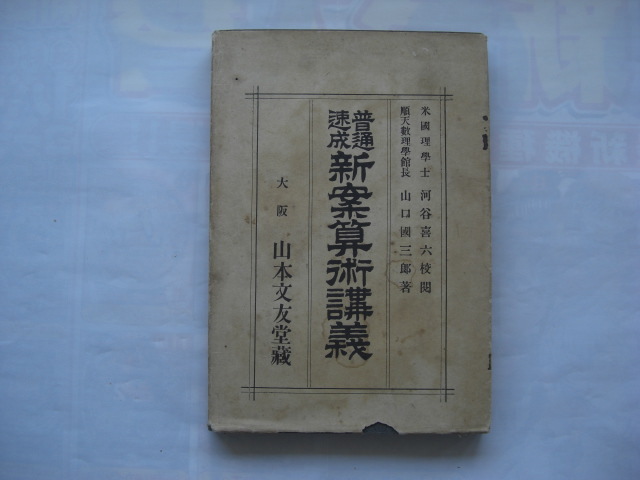 米國理學士 河谷喜六校閲
順天數理學館長 山口國三郎著
普通
速成
新案算術講義
大阪 山本文友堂藏